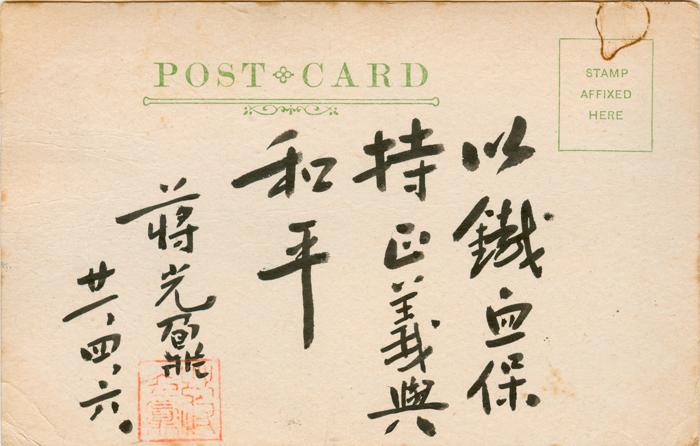 POST CARD
STAMP
AFFIXED
HERE
以鐵血保
持正義與
和平
蔣光鼐
廿一、四、六。